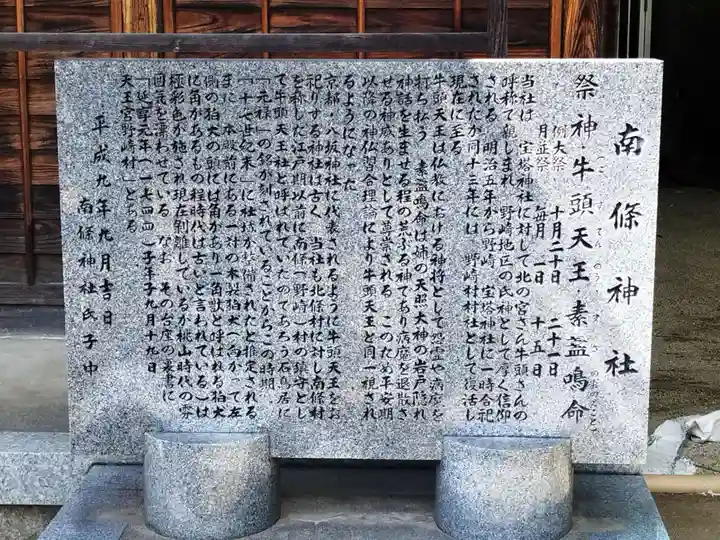 南條神社
祭神・牛頭天王 素盞鳴命
ごずてんのう すさのおのみこと
例大祭、十月二十日 二十一日
月並祭、毎月一日 十五日
当社は、宝塔神社に対して北の宮さん牛頭さんの
呼称で親しまれ、野崎地区の氏神として厚く信仰
される。明治五年から野崎、宝塔神社に一時合祀
されたが同十三年には、野崎村村社として復活し
現在に至る
牛頭天王は仏教における神将として怨霊や病魔を
打ち払う、素盞鳴命は姉の天照大神の岩戸隠れ
神話を生ませる程の荒ぶる神であり病魔を退散さ
せる神威ありとして尊崇される。このため平安期
以降の神仏習合理論により牛頭天王と同一視され
るようになった
京都・八坂神社に代表されるように牛頭天王をお
祀りする神社は古く、当社も北條村に対し南條村
を称した江戸期以前に南條（野崎）村の鎮守とし
て牛頭天王社と呼ばれていたのであろう石鳥居に
「元禄」の銘が刻まれていることからこの時期、
「十七世紀末」に社坊が整備されたと推定される
また、本殿前にある一対の木製狛犬（向かって左
側の狛犬の頭には角があり一角獣と呼ばれる狛犬
に角があるもの程時代は古いと言われている）は
極彩色が施され現在剥離しているが桃山時代の雰
囲気を漂わせている なお、その台座の裏書に
「延享元年（一七四四）子年子九月十九日
天王宮野崎村」とある
平成九年九月吉日
南條神社氏子中